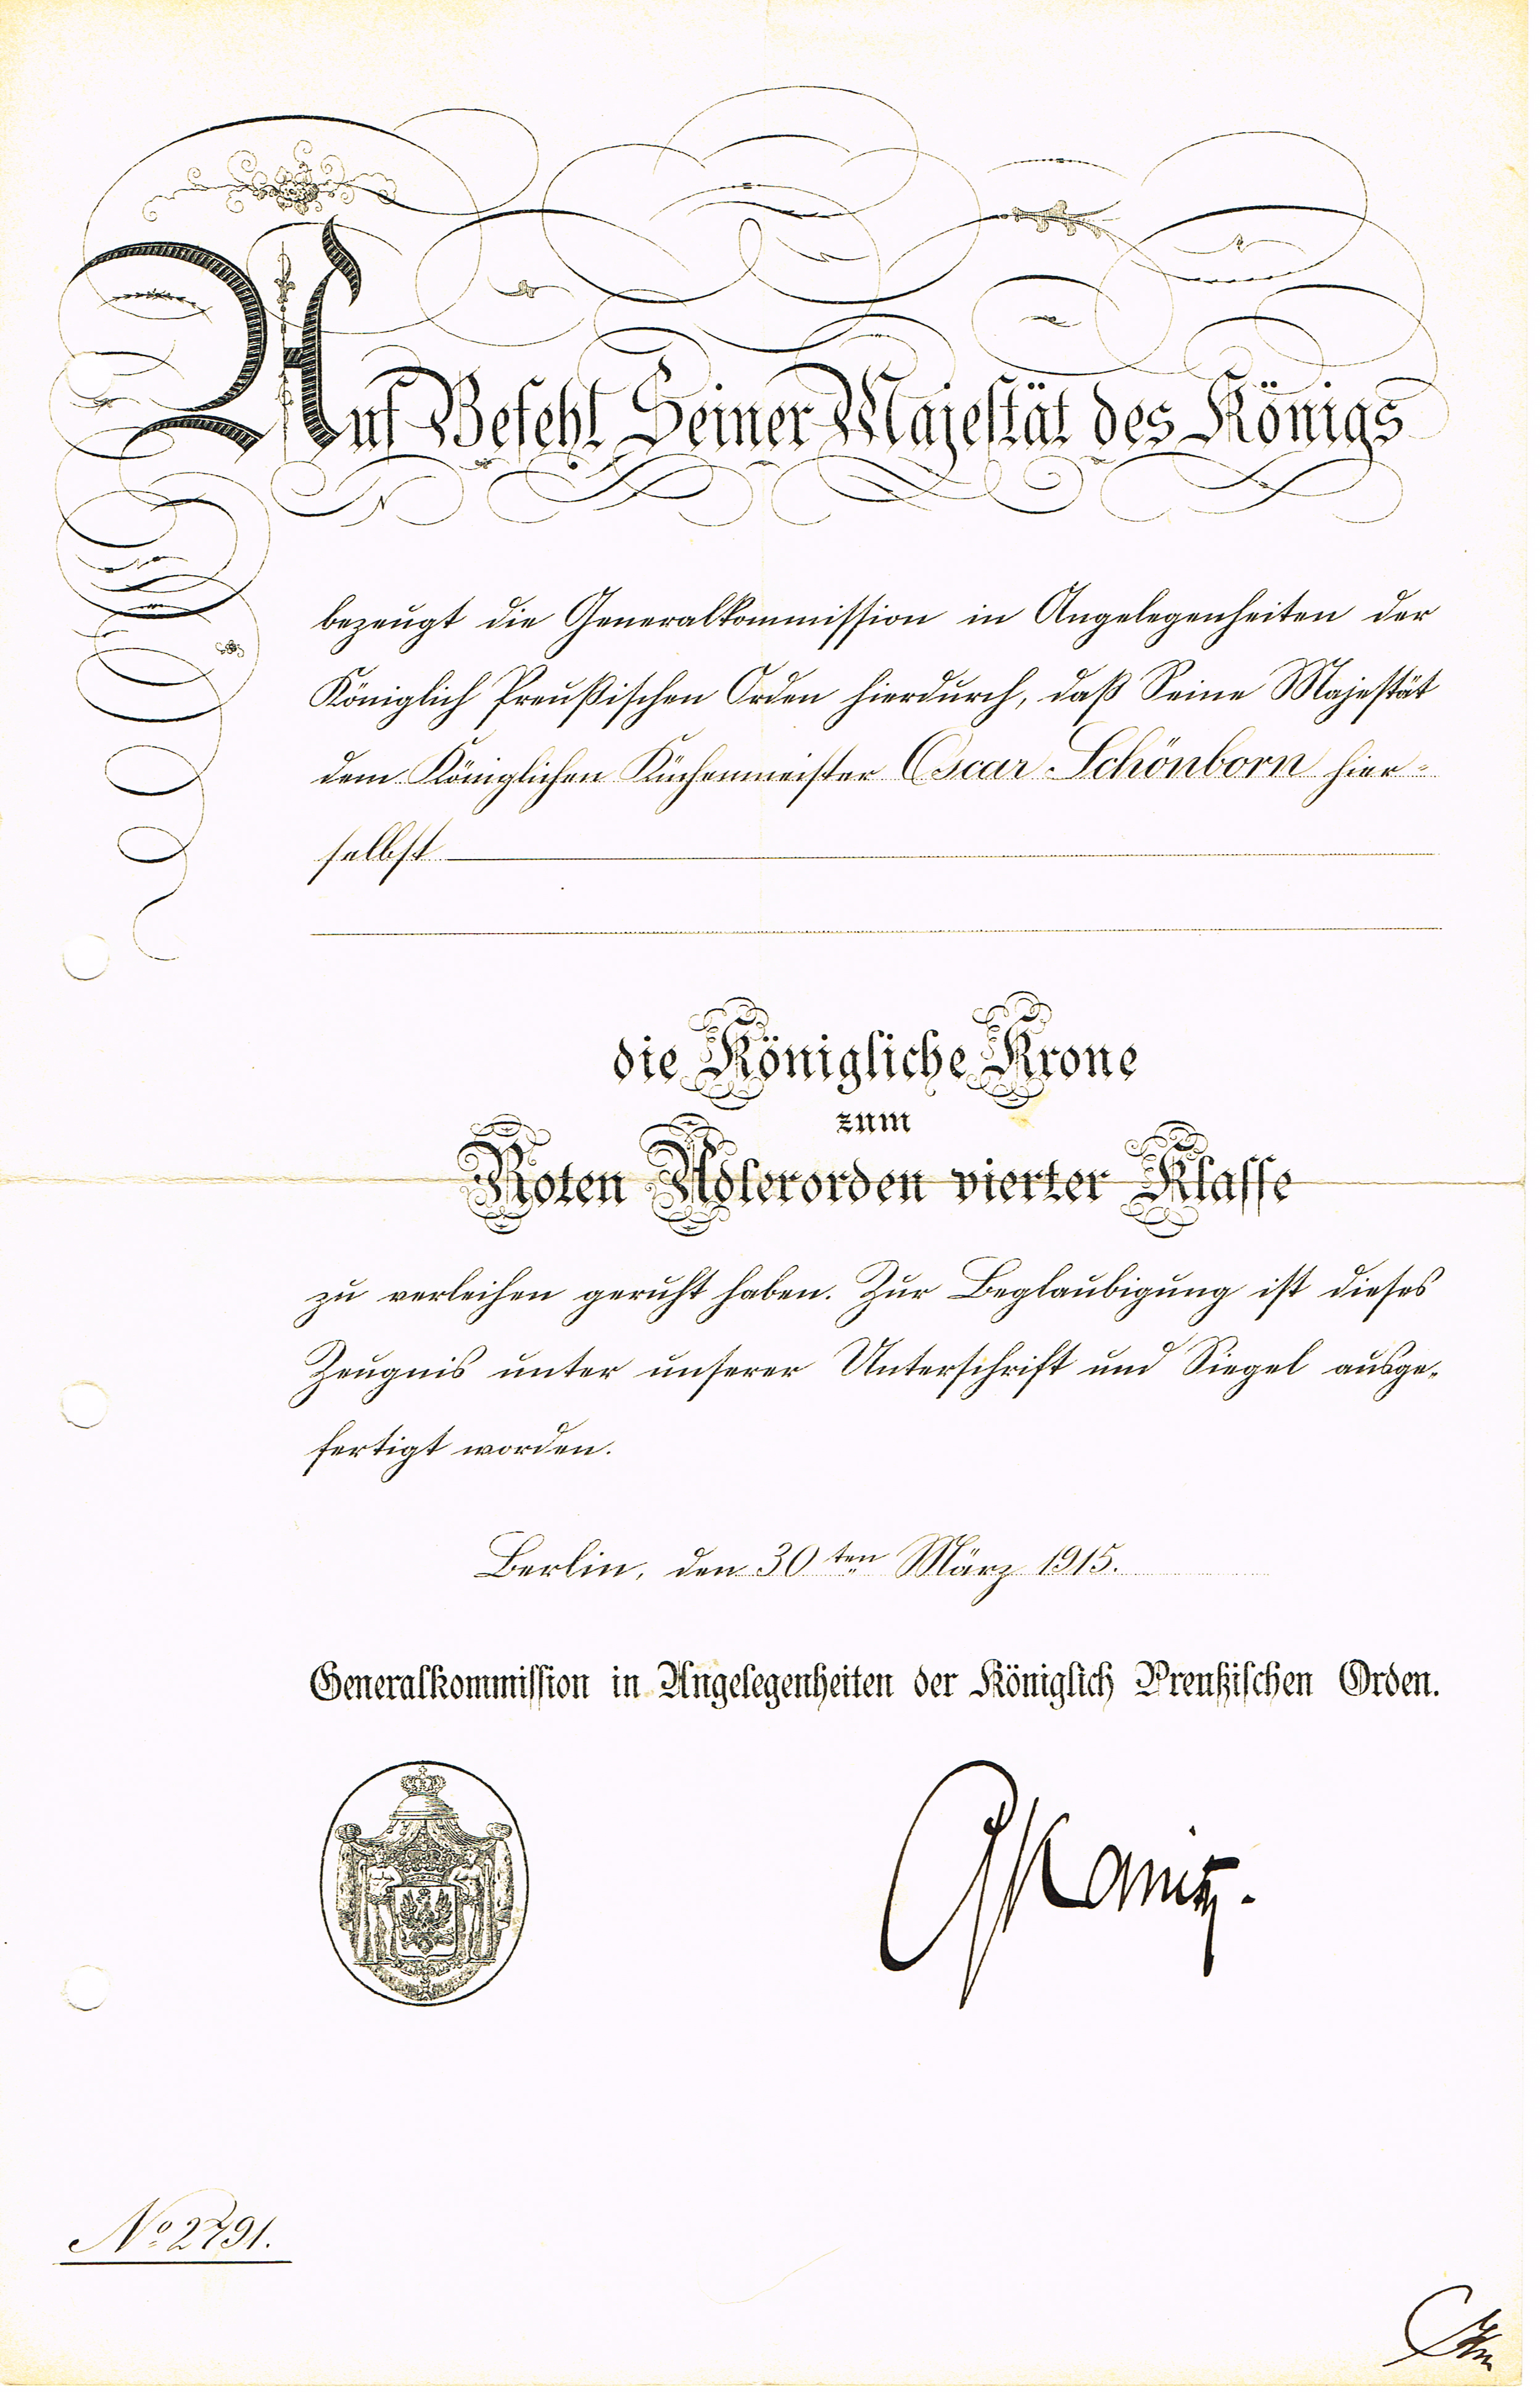 Auf Befehl Seiner Majestät des Königs
bezeugt die Generalkommission in Angelegenheiten der
Königlich Preußischen Orden hierdurch, daß Seine Majestät
dem Königlichen Küchenmeister Oscar Schönborn hier-
selbst
die Königliche Krone
zum
Roten Adlerorden vierter Klasse
zu verleihen geruht haben. Zur Beglaubigung ist dieses
Zeugnis unter unserer Unterschrift und Siegel ausge-
fertigt worden.
Berlin, den 30ten März 1915.
Generalkommission in Angelegenheiten der Königlich Preußischen Orden.
Kanitz.
No 2791.